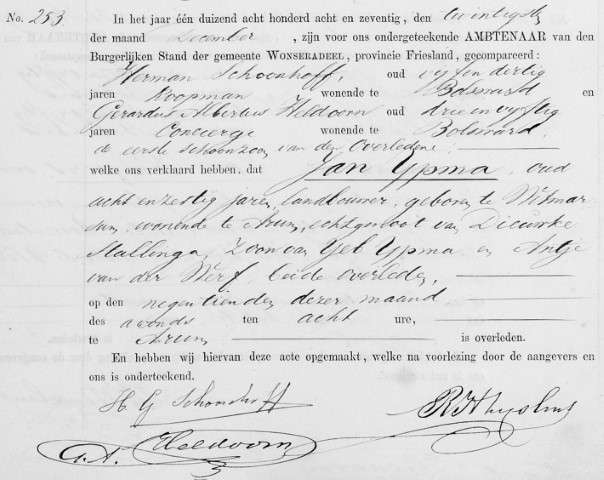 No. 253. In het jaar één duizend acht honderd acht en zeventig, den twintigsten
der maand December, zijn voor ons ondergeteekende AMBTENAAR van den
Burgerlijken Stand der gemeente WONSERADEEL, provincie Friesland, gecompareerd:
Herman Schoonhoff, oud vijfendertig
jaren Koopman wonende te Bolsward en
Gerardus Albertus Heldoorn oud drieenvijftig
jaren Concierge wonende te Bolsward.
de eerste schoonzoon van den Overledene.
welke ons verklaard hebben, dat Jan Ypma, oud
acht en zestig jaren, landbouwer, geboren te Witmar
sum, wonende te Arum, echtgenoot van Dieuwke
Mallinga, Zoon van Yeb Ypma en Antje
van der Werf, beide overleden,
op den negentienden dezer maand
des avonds ten acht ure,
te Arum is overleden.
En hebben wij hiervan deze acte opgemaakt, welke na voorlezing door de aangevers en
ons is onderteekend.
H G Schoonhoff
G. A. Heldoorn